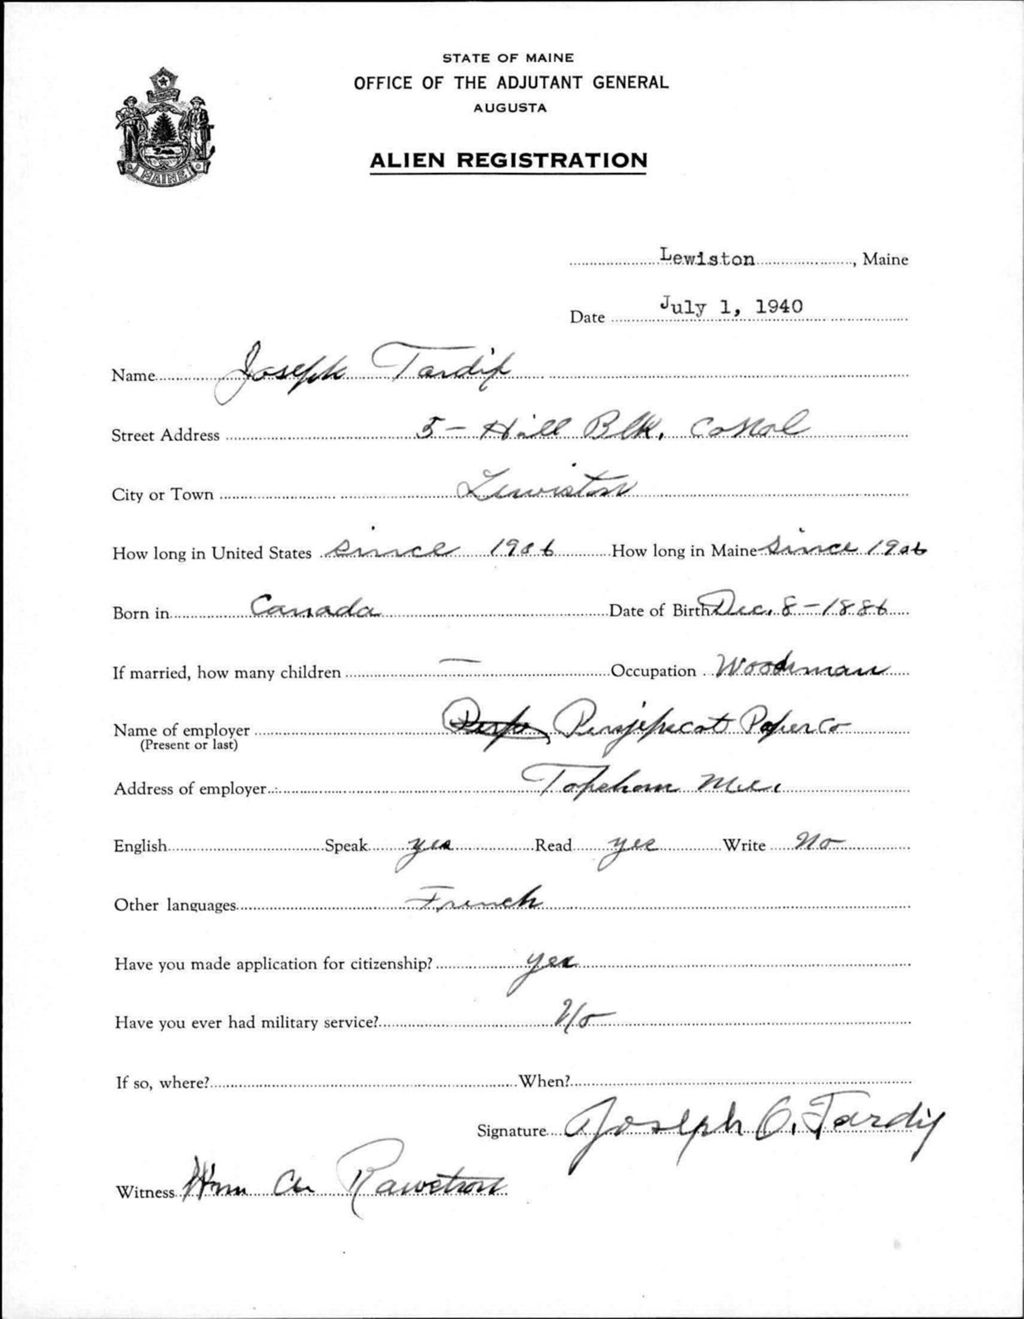 STATE OF MAINE
OFFICE OF THE ADJUTANT GENERAL
AUGUSTA
ALIEN REGISTRATION
MAINE
Lewiston, Maine
Date July 1, 1940
Name Joseph Tardif
Street Address 5 - Hill Blk.
City or Town Lewiston
How long in United States since 1906 How long in Maine since 1906
Born in Canada Date of Birth Dec. 8 - 1886
If married, how many children — Occupation Woodsman
Name of employer Pejepscot Paper Co
(Present or last)
Address of employer Topsham Me.
English Speak yes Read yes Write No
Other languages French
Have you made application for citizenship? yes
Have you ever had military service? No
If so, where? When?
Signature Joseph O. Tardif
Witness Wm A. Rawstron